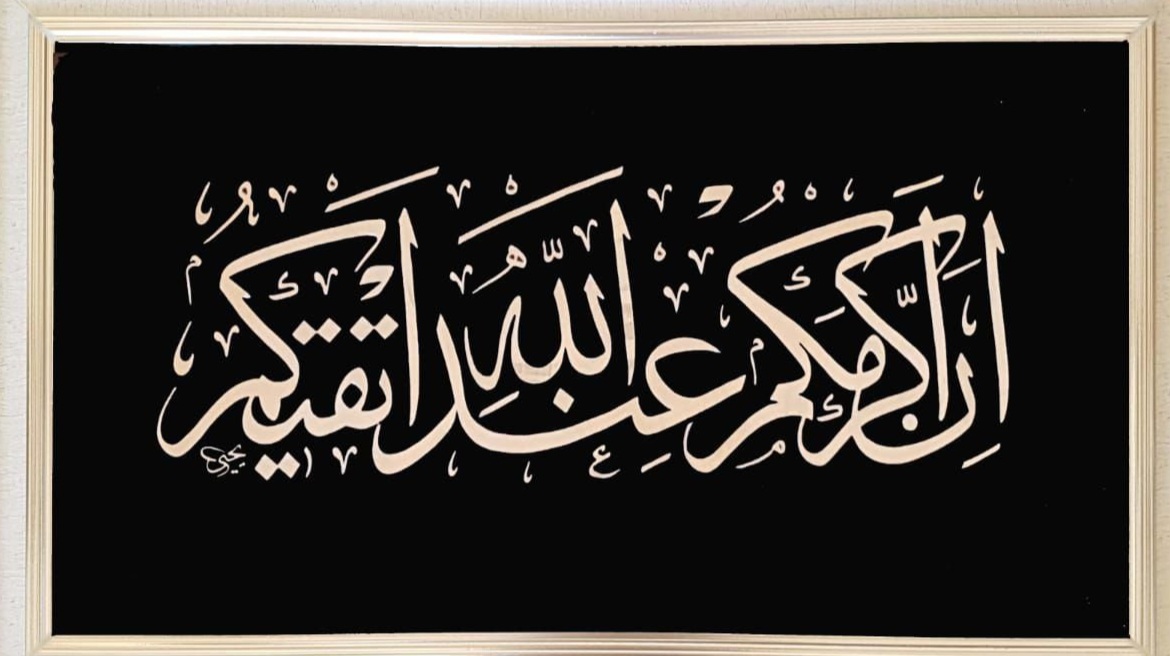 إِنَّ أَكْرَمَكُمْ عِنْدَ اللَّهِ أَتْقَىٰكُمْ
يحيى